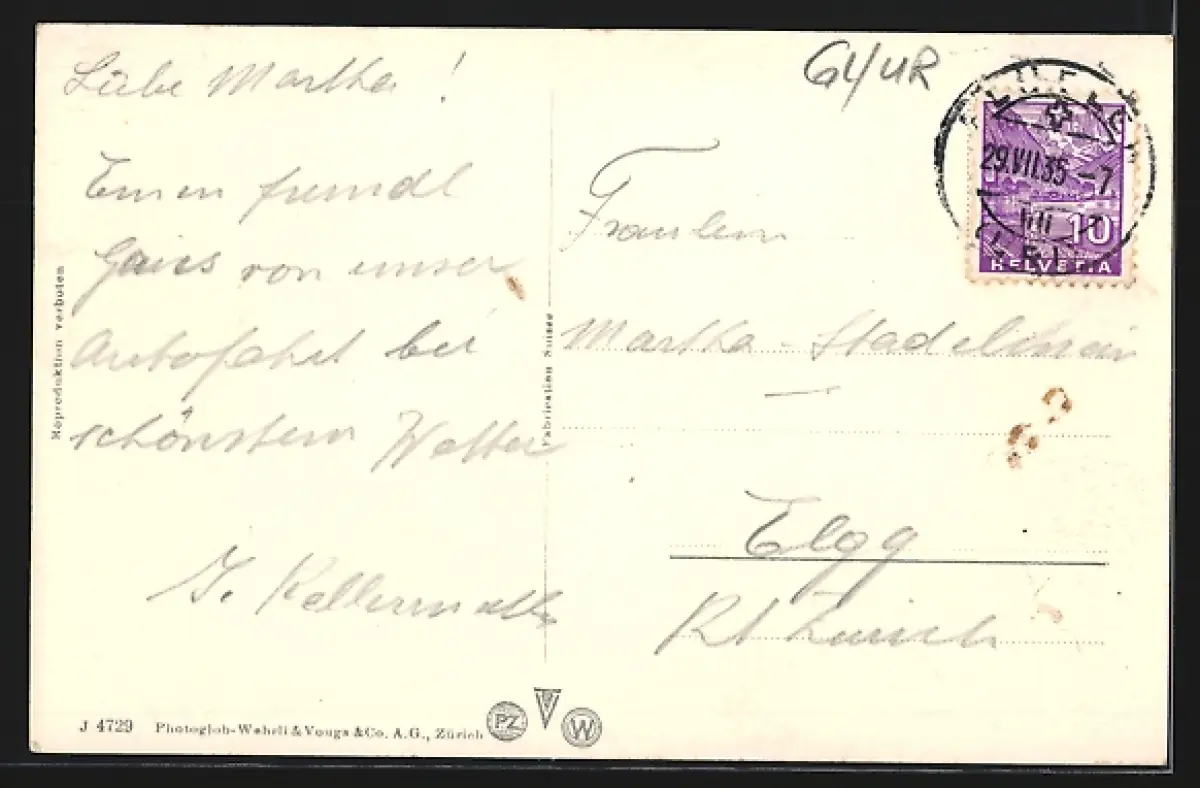 Liebe Martha!
Einen freundl
von unser
Autofahrt bei
schönstem Wetter
Fräulein
Martha
Elgg
Kt Zürich
G4/UR
29.VII.35 -7
10
HELVETIA
Reproduktion verboten
Fabrication Suisse
J 4729 Photoglob-Wehrli & Vouga & Co. A.G., Zürich
PZ
V
W